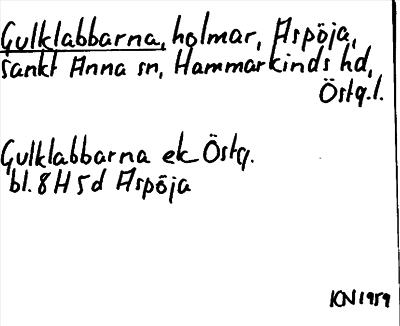 Gulklabbarna, holmar, Aspöja,
Sankt Anna sn, Hammarkinds hd,
Östg.l.
Gulklabbarna ek Östg.
bl. 8H 5d Aspöja
KN 1959